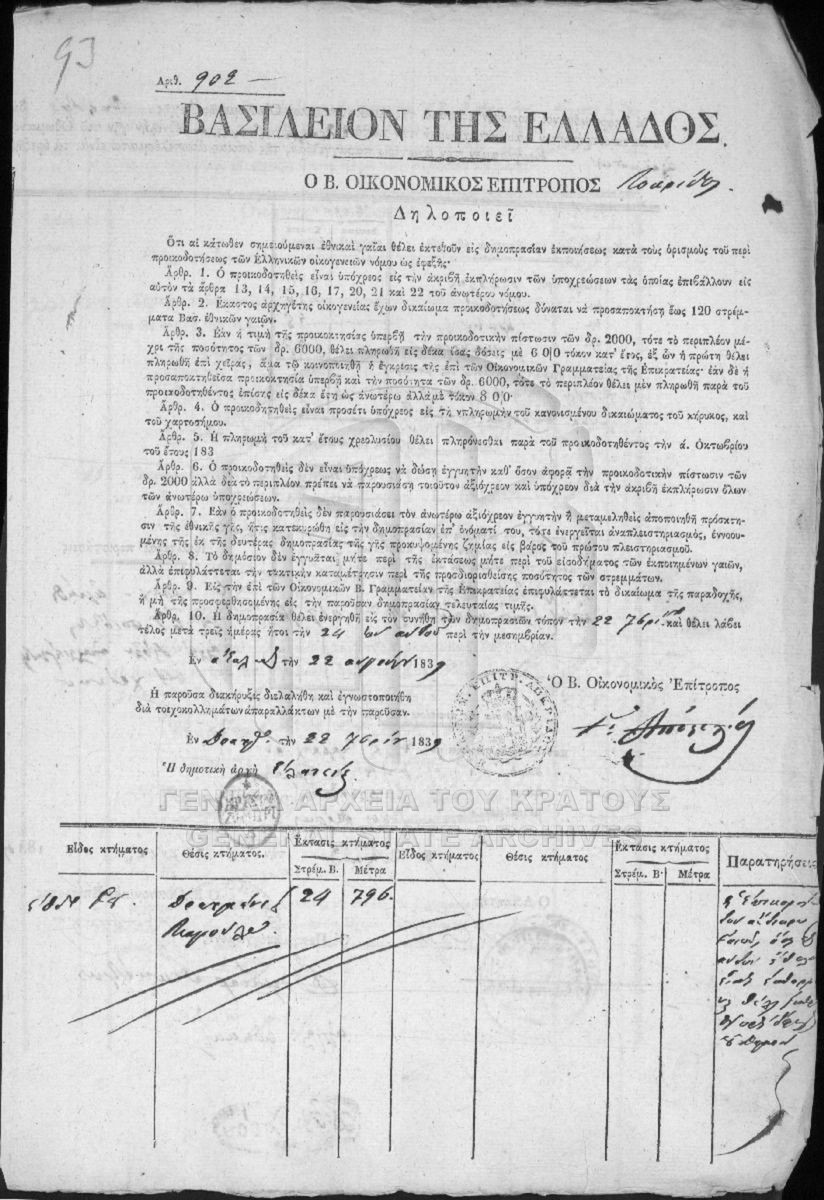 93
Ἀριθ. 902
ΒΑΣΙΛΕΙΟΝ ΤΗΣ ΕΛΛΑΔΟΣ.
Ο Β. ΟΙΚΟΝΟΜΙΚΟΣ ΕΠΙΤΡΟΠΟΣ
Δηλοποιεῖ
Ὅτι αἱ κάτωθεν σημειούμεναι ἐθνικαὶ γαῖαι θέλει ἐκτεθοῦν εἰς δημοπρασίαν ἐκποιήσεως κατὰ τοὺς ὁρισμοὺς τοῦ περὶ
προικοδοτήσεως τῶν Ἑλληνικῶν οἰκογενειῶν νόμου ὡς ἐφεξῆς·
Ἄρθρ. 1. Ὁ προικοδοτηθεὶς εἶναι ὑπόχρεος εἰς τὴν ἀκριβῆ ἐκπλήρωσιν τῶν ὑποχρεώσεων τὰς ὁποίας ἐπιβάλλουν εἰς
αὐτὸν τὰ ἄρθρα 13, 14, 15, 16, 17, 20, 21 καὶ 22 τοῦ ἀνωτέρω νόμου.
Ἄρθρ. 2. Ἕκαστος ἀρχηγέτης οἰκογενείας ἔχων δικαίωμα προικοδοτήσεως δύναται νὰ προσαποκτήσῃ ἕως 120 στρέμ-
ματα Βασ. ἐθνικῶν γαιῶν.
Ἄρθρ. 3. Ἐὰν ἡ τιμὴ τῆς προικοκτησίας ὑπερβῇ τὴν προικοδοτικὴν πίστωσιν τῶν δρ. 2000, τότε τὸ περιπλέον μέ-
χρι τῆς ποσότητος τῶν δρ. 6000, θέλει πληρωθῆ εἰς δέκα ἴσας δόσεις μὲ 6 0|0 τόκον κατ' ἔτος, ἐξ ὧν ἡ πρώτη θέλει
πληρωθῆ ἐπὶ χεῖρας, ἅμα τῷ κοινοποιηθῇ ἡ ἔγκρισις τῆς ἐπὶ τῶν Οἰκονομικῶν Γραμματείας τῆς Ἐπικρατείας· ἐὰν δὲ ἡ
προσαποκτηθεῖσα προικοκτησία ὑπερβῇ καὶ τὴν ποσότητα τῶν δρ. 6000, τότε τὸ περιπλέον θέλει μὲν πληρωθῆ παρὰ τοῦ
προικοδοτηθέντος ἐπίσης εἰς δέκα ἔτη ὡς ἀνωτέρω ἀλλὰ μὲ τόκον 8 0|0
Ἄρθρ. 4. Ὁ προικοδοτηθεὶς εἶναι προσέτι ὑπόχρεος εἰς τὴν πληρωμὴν τοῦ κανονισμένου δικαιώματος τοῦ κήρυκος, καὶ
τοῦ χαρτοσήμου.
Ἄρθρ. 5. Ἡ πληρωμὴ τοῦ κατ' ἔτους χρεολυσίου θέλει πληρόνεσθαι παρὰ τοῦ προικοδοτηθέντος τὴν ά. Ὀκτωβρίου
τοῦ ἔτους 183
Ἄρθρ. 6. Ὁ προικοδοτηθεὶς δὲν εἶναι ὑπόχρεως νὰ δώσῃ ἐγγυητὴν καθ' ὅσον ἀφορᾷ τὴν προικοδοτικὴν πίστωσιν τῶν
δρ. 2000 ἀλλὰ διὰ τὸ περιπλέον πρέπει νὰ παρουσιάσῃ τοιοῦτον ἀξιόχρεον καὶ ὑπόχρεον διὰ τὴν ἀκριβῆ ἐκπλήρωσιν ὅλων
τῶν ἀνωτέρω ὑποχρεώσεων.
Ἄρθρ. 7. Ἐὰν ὁ προικοδοτηθεὶς δὲν παρουσιάσει τὸν ἀνωτέρω ἀξιόχρεον ἐγγυητὴν ἢ μεταμεληθεὶς ἀποποιηθῇ πρόσκτη-
σιν τῆς ἐθνικῆς γῆς, ἥτις κατεκυρώθη εἰς τὴν δημοπρασίαν ἐπ' ὀνόματί του, τότε ἐνεργεῖται ἀναπλειστηριασμὸς, ἐννοου-
μένης τῆς ἐκ τῆς δευτέρας δημοπρασίας τῆς γῆς προκυψομένης ζημίας εἰς βάρος τοῦ πρώτου πλειστηριασμοῦ.
Ἄρθρ. 8. Τὸ δημόσιον δὲν ἐγγυᾶται μήτε περὶ τῆς ἐκτάσεως μήτε περὶ τοῦ εἰσοδήματος τῶν ἐκποιημένων γαιῶν,
ἀλλὰ ἐπιφυλάττεται τὴν τακτικὴν καταμέτρησιν περὶ τῆς προσδιορισθείσης ποσότητος τῶν στρεμμάτων.
Ἄρθρ. 9. Εἰς τὴν ἐπὶ τῶν Οἰκονομικῶν Β. Γραμματείαν τῆς Ἐπικρατείας ἐπιφυλάττεται τὸ δικαίωμα τῆς παραδοχῆς,
ἢ μὴ τῆς προσφερθησομένης εἰς τὴν παροῦσαν δημοπρασίαν τελευταίας τιμῆς.
Ἄρθρ. 10. Ἡ δημοπρασία θέλει ἐνεργηθῆ εἰς τὸν συνήθη τῶν δημοπρασιῶν τόπον τὴν 22 καὶ θέλει λάβει
τέλος μετὰ τρεῖς ἡμέρας ἤτοι τὴν 24 περὶ τὴν μεσημβρίαν.
Ἐν τὴν 22 1839
Ὁ Β. Οἰκονομικὸς Ἐπίτροπος
Ἡ παροῦσα διακήρυξις διελαλήθη καὶ ἐγνωστοποιήθη
διὰ τοιχοκολλημάτων ἀπαραλλάκτων μὲ τὴν παροῦσαν.
Ἐν τὴν 22 1839
Ἡ δημοτικὴ ἀρχὴ
ΓΕΝΙΚΑ ΑΡΧΕΙΑ ΤΟΥ ΚΡΑΤΟΥΣ
GENERAL STATE ARCHIVES
Εἶδος κτήματος Θέσις κτήματος. Ἔκτασις κτήματος Εἶδος κτήματος Θέσις κτήματος Ἔκτασις κτήματος Παρατηρήσεις
Στρέμ. Β. Μέτρα Στρέμ. Β. Μέτρα
24 796